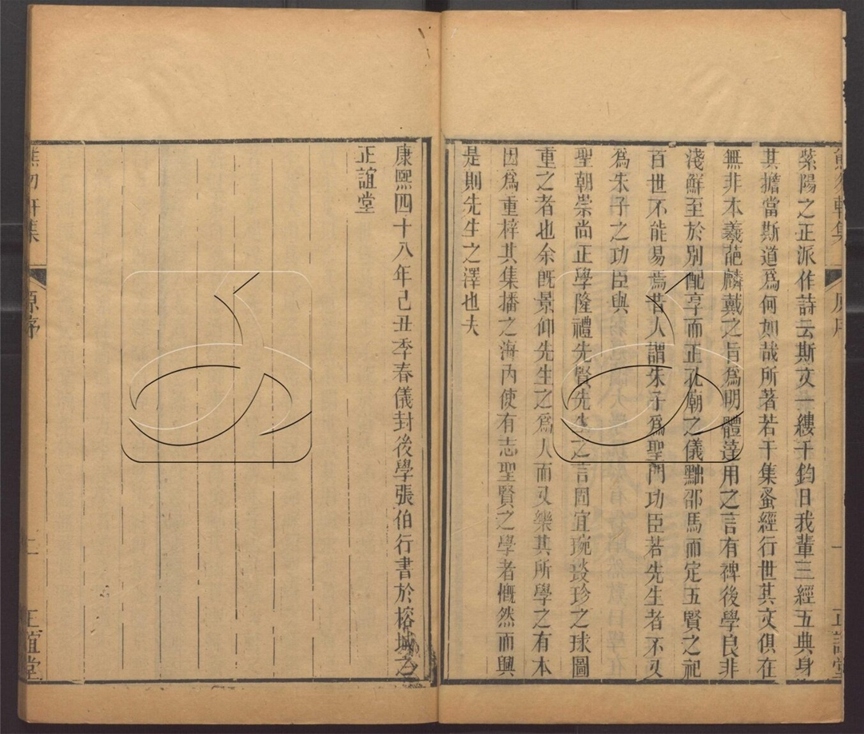 熊勿軒集 原序 一 正誼堂
紫陽之正派作詩云斯文一縷千鈞日我輩三經五典身
其擔當斯道爲何如哉所著若干集蚤經行世其文俱在
無非本羲葩麟戴之旨爲明體達用之言有裨後學良非
淺鮮至於別配享而正孔廟之儀黜邵馬而定五賢之祀
百世不能易焉昔人謂朱子爲聖門功臣若先生者不又
爲朱子之功臣與
聖朝崇尚正學隆禮先賢先生之言固宜琬琰珍之球圖
重之者也余旣景仰先生之爲人而又樂其所學之有本
因爲重梓其集播之海內使有志聖賢之學者慨然而興
是則先生之澤也夫
康熙四十八年己丑季春儀封後學張伯行書於榕城之
正誼堂
熊勿軒集 原序 二 正誼堂